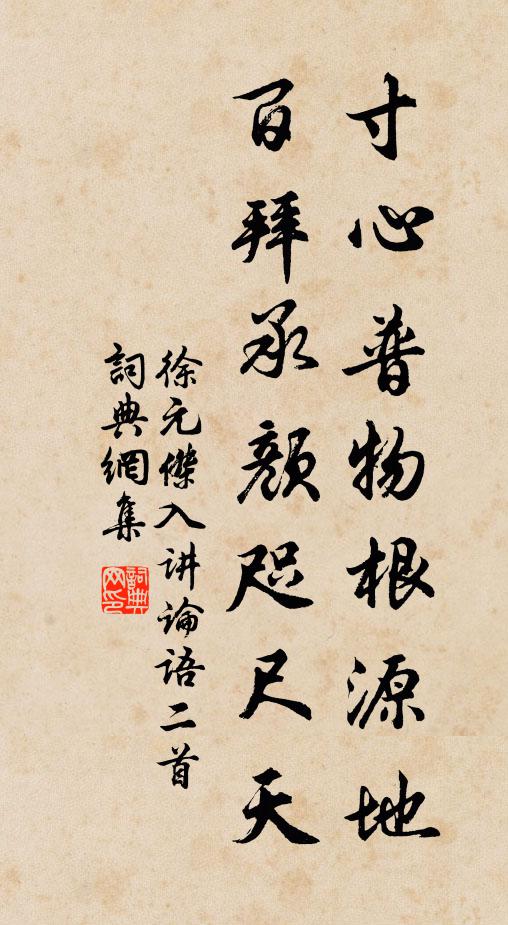 寸心普物根源地
百拜承顏咫尺天
徐元傑入讲論语二首
詞典網集
詞典网印